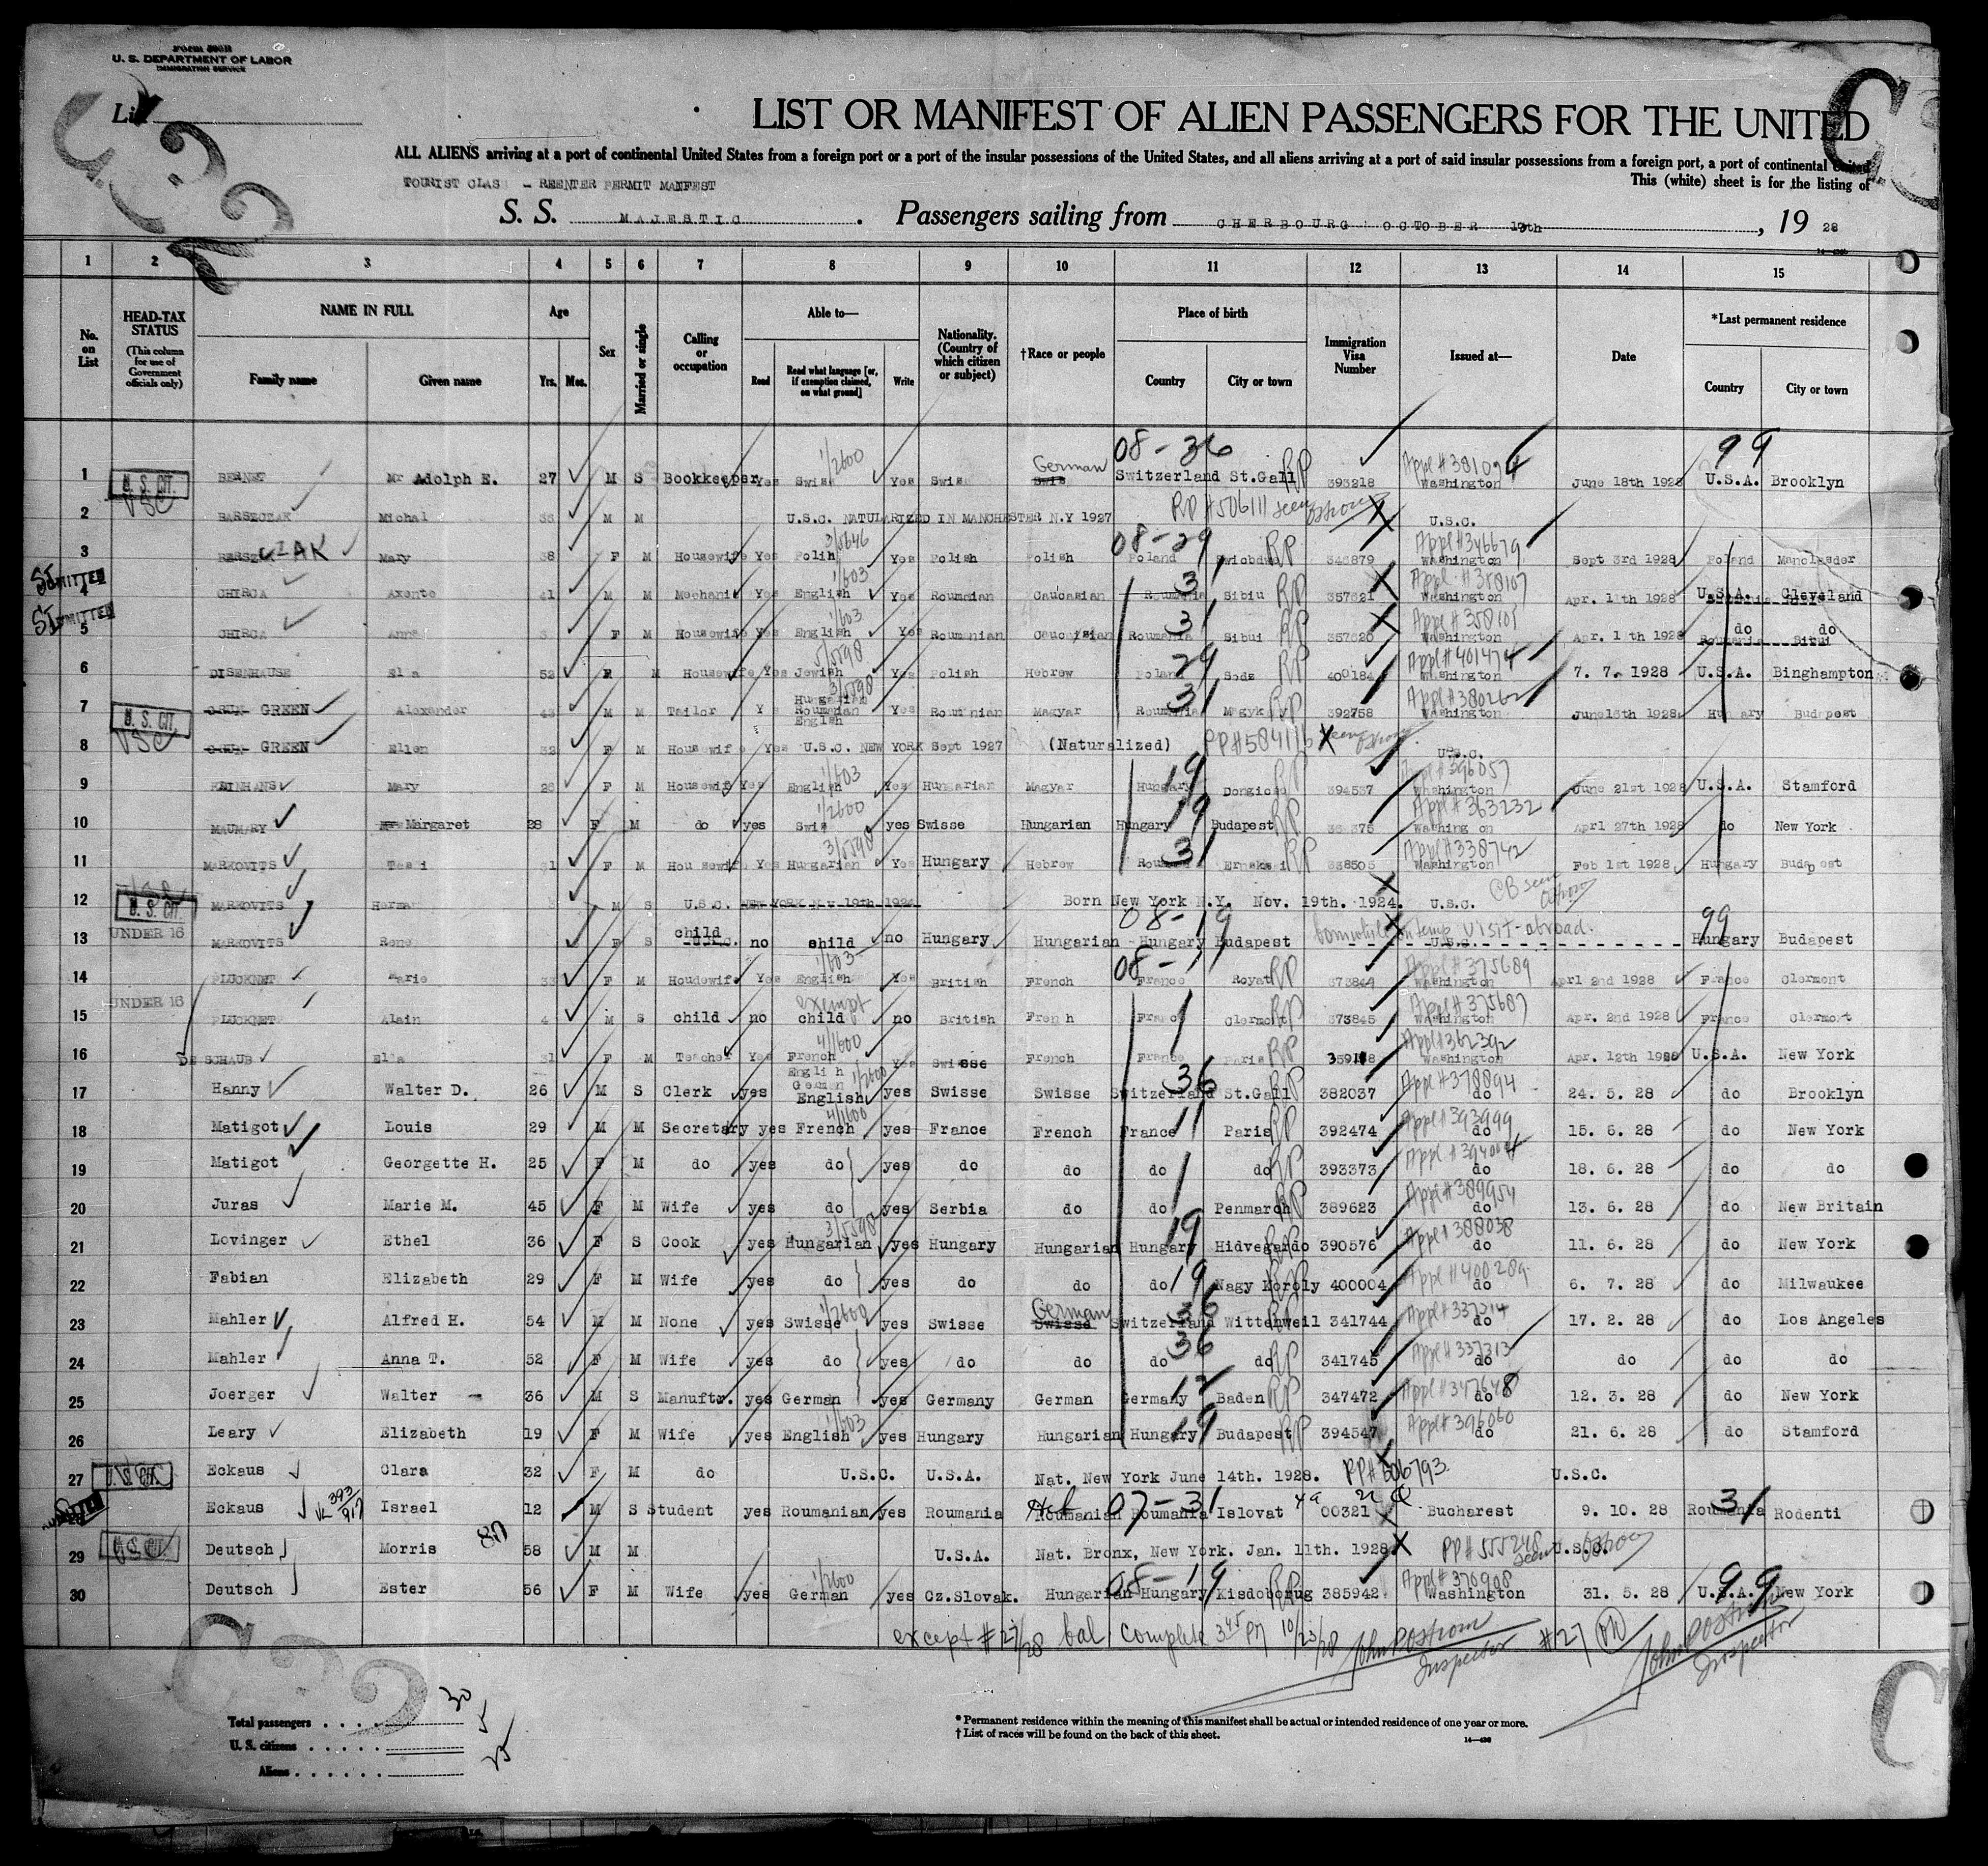 Form 500B
U. S. DEPARTMENT OF LABOR
IMMIGRATION SERVICE
List
LIST OR MANIFEST OF ALIEN PASSENGERS FOR THE UNITED
ALL ALIENS arriving at a port of continental United States from a foreign port or a port of the insular possessions of the United States, and all aliens arriving at a port of said insular possessions from a foreign port, a port of continental United
TOURIST CLASS - REENTER PERMIT MANIFEST
This (white) sheet is for the listing of
S. S. MAJESTIC . Passengers sailing from CHERBOURG OCTOBER 19 28
1 2 3 4 5 6 7 8 9 10 11 12 13 14 15
No. on List
HEAD-TAX STATUS (This column for use of Government officials only)
NAME IN FULL Family name Given name
Age Yrs. Mos.
Sex
Married or single
Calling or occupation
Able to— Read Read what language [or, if exemption claimed, on what ground] Write
Nationality. (Country of which citizen or subject)
†Race or people
Place of birth Country City or town
Immigration Visa Number
Issued at—
Date
*Last permanent residence Country City or town
08-36 99
1 U.S. CIT. Mr Adolph E. 27 M S Bookkeeper Yes Swiss Yes Swiss German Switzerland St.Gall RP 393218 Washington June 18th 1928 U.S.A. Brooklyn
2 Michal M M U.S.C. NATURALIZED IN MANCHESTER N.Y 1927 U.S.C.
08-29
3 Mary 38 F M Housewife Yes Polih Yes Polish Polish Poland RP Appl #346679 Washington Sept 3rd 1928 Poland
4 CHIRCA Axente 41 M M Mechanic Yes English Yes Roumanian Caucasian Roumania Sibiu RP 357621 Appl #358107 Washington Apr. 11th 1928 U.S.A. Cleveland
5 CHIRCA Anna F M Housewife Yes English Yes Roumanian Caucasian Roumania Sibui RP 357620 Washington 1928 do do
6 DISENHAUSE Ella 52 F M Housewife Yes Jewish Yes Polish Hebrew Poland RP 400184 Appl #401474 Washington 7. 7. 1928 U.S.A. Binghampton
7 U.S. CIT. GREEN Alexander 43 M M Tailor Yes Hungarian Roumanian English Yes Roumanian Magyar Roumania RP 392758 Appl #380262 Washington 1928 Hungary Budapest
8 GREEN Ellen 32 F M Housewife Yes U.S.C. NEW YORK Sept 1927 (Naturalized) U.S.C.
9 Mary F M Housewife Yes English Yes Hungarian Magyar Hungary RP 394537 Appl #396057 Washington June 21st 1928 U.S.A. Stamford
10 MAUMARY Margaret 28 F M do yes Swis yes Swisse Hungarian Hungary Budapest RP Appl #363232 Washington Aprl 27th 1928 do New York
11 MARKOVITS 31 F M Housewife Yes Hungarian Yes Hungary Hebrew RP 338505 Appl #338742 Washington Feb 1st 1928 Hungary Budapest
12 U.S. CIT. MARKOVITS Herman M S U.S.C. Born New York N.Y. Nov. 19th. 1924. U.S.C.
08-19 99
13 UNDER 16 MARKOVITS Rene F S child no child no Hungary Hungarian Hungary Budapest Hungary Budapest
08-11
14 PLUCKNET Marie 33 F M Houdewife Yes English Yes British French France Royat RP Appl #375689 Washington Aprl 2nd 1928 France Clermont
15 UNDER 16 PLUCKNET Alain 4 M S child no exempt child no British French France Clermont RP 373845 Appl #375687 Washington Apr. 2nd 1928 France Clermont
16 DE SCHAUB Ella 31 F M Teacher Yes French English German Yes Swisse French France Paris RP Appl #362392 Washington Apr. 12th 1928 U.S.A. New York
17 Hanny Walter D. 26 M S Clerk yes English yes Swisse Swisse Switzerland St.Gall RP 382037 Appl #378894 do 24. 5. 28 do Brooklyn
18 Matigot Louis 29 M M Secretary yes French yes France French France Paris RP 392474 Appl #393999 do 15. 6. 28 do New York
19 Matigot Georgette H. 25 F M do yes do yes do do do do RP 393373 Appl #394004 do 18. 6. 28 do do
20 Juras Marie M. 45 F M Wife yes do yes Serbia do do Penmarch RP 389623 Appl #389954 do 13. 6. 28 do New Britain
21 Lovinger Ethel 36 F S Cook yes Hungarian yes Hungary Hungarian Hungary Hidvegardo RP 390576 Appl #388038 do 11. 6. 28 do New York
22 Fabian Elizabeth 29 F M Wife yes do yes do do do Nagy Koroly RP 400004 Appl #400289 do 6. 7. 28 do Milwaukee
23 Mahler Alfred H. 54 M M None yes Swisse yes Swisse German Swisse Switzerland Wittenweil RP 341744 Appl #337314 do 17. 2. 28 do Los Angeles
24 Mahler Anna T. 52 F M Wife yes do yes do do do do RP 341745 Appl #337313 do do do do
25 Joerger Walter 36 M S Manuftr. yes German yes Germany German Germany Baden RP 347472 Appl #347648 do 12. 3. 28 do New York
26 Leary Elizabeth 19 F M Wife yes English yes Hungary Hungarian Hungary Budapest RP 394547 Appl #396060 do 21. 6. 28 do Stamford
27 U.S. CIT. Eckaus Clara 32 F M do U.S.C. U.S.A. Nat. New York June 14th. 1928. PP#606793 U.S.C.
28 Eckaus Israel 12 M S Student yes Roumanian yes Roumania Roumanian 07-31 Roumania Islovat 00321 Bucharest 9. 10. 28 Roumania Rodenti
29 Deutsch Morris 58 M M U.S.A. Nat. Bronx, New York. Jan. 11th. 1928 PP#555248 seen U.S.C.
30 Deutsch Ester 56 F M Wife yes German yes Cz.Slovak. Hungarian 08-19 Hungary Kisdoborug RP 385942 Appl #370908 Washington 31. 5. 28 U.S.A. 99 New York
except #27/28 bal complete 3 45 PM 10/23/28 John P Ostrom Inspector #27 John P Ostrom Inspector
Total passengers 30
U. S. citizens 5
Aliens 25
* Permanent residence within the meaning of this manifest shall be actual or intended residence of one year or more.
† List of races will be found on the back of this sheet.